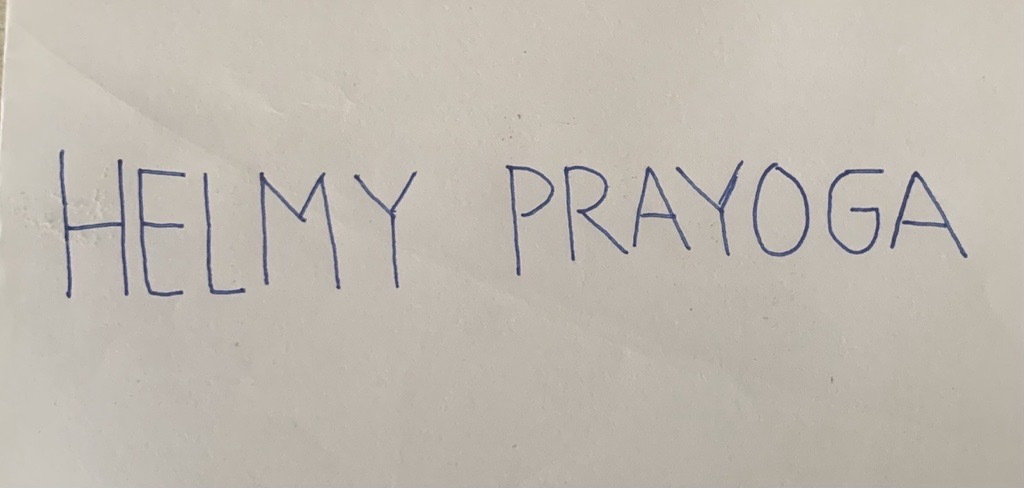 HELMY PRAYOGA